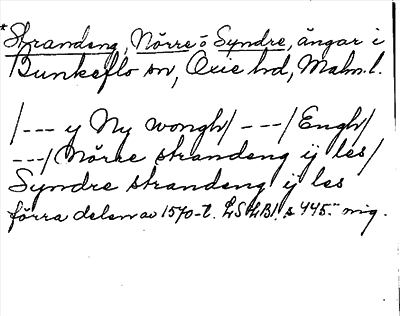 *Strandeng, Nörre o Syndre, ängar i
Bunkeflo sn, Oxie hd, Malm.l.
/--- y Ny wongh/ ---/Engh/
---/Nörre strandeng ij les/
Syndre strandeng ij les
förra delen av 1570-t. LSLB1. s 445. mig.